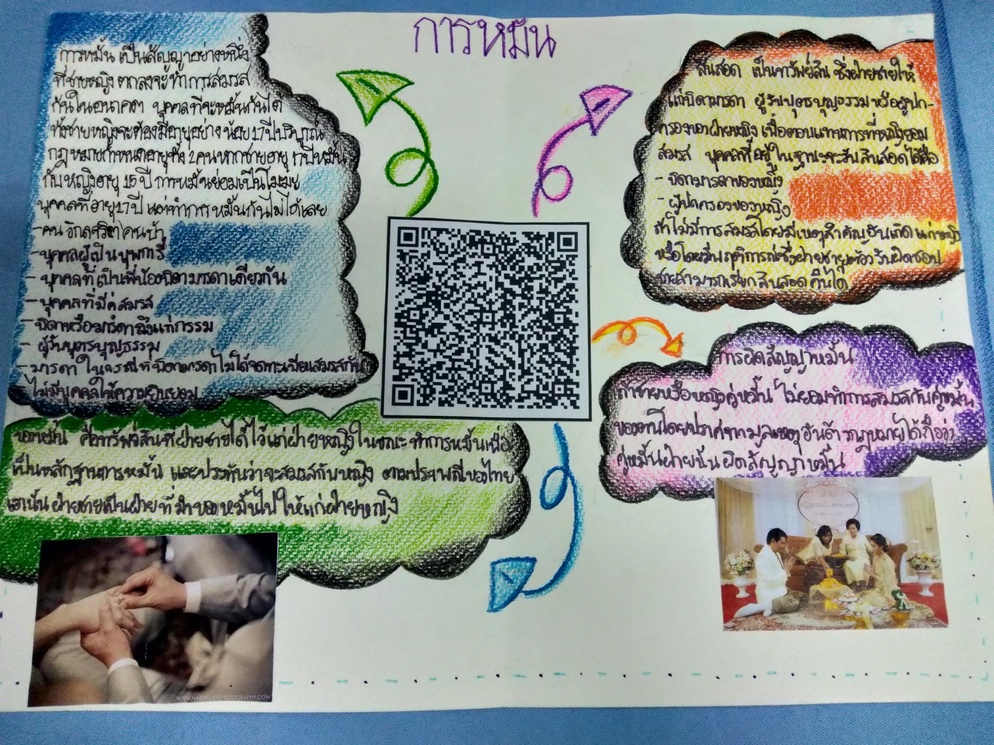 การหมั้น
การหมั้น เป็นสัญญาอย่างหนึ่ง
ที่ชายหญิงตกลงจะทำการสมรส
กันในอนาคต บุคคลที่จะหมั้นกันได้
ทั้งชายหญิงจะต้องมีอายุอย่างน้อย 17 ปีบริบูรณ์
กฎหมายกำหนดอายุทั้ง 2 คน หากชายอายุ 17 ปีหมั้น
กับหญิงอายุ 15 ปี การหมั้นย่อมเป็นโมฆะ
บุคคลที่อายุ 17 ปี แต่ทำการหมั้นกันไม่ได้เลย
-คนวิกลจริต คนบ้า
-บุคคลผู้เป็นบุพการี
-บุคคลที่เป็นพี่น้องบิดามารดาเดียวกัน
-บุคคลที่มีคู่สมรส
-บิดาหรือมารดาถึงแก่กรรม
-ผู้รับบุตรบุญธรรม
-มารดา ในกรณีที่บิดามารดาไม่ได้จดทะเบียนสมรสกัน
ไม่มีบุคคลให้ความยินยอม
สินสอด เป็นทรัพย์สิน ซึ่งฝ่ายชายให้
แก่บิดามารดา ผู้รับบุตรบุญธรรม หรือผู้ปก-
ครองของฝ่ายหญิง เพื่อตอบแทนการที่หญิงยอม
สมรส บุคคลที่อยู่ในฐานะจะรับสินสอดได้คือ
-บิดามารดาของหญิง
-ผู้ปกครองของหญิง
ถ้าไม่มีการสมรสโดยมีเหตุสำคัญอันเกิดแก่หญิง
หรือโดยมีพฤติการณ์ซึ่งฝ่ายชายต้องรับผิดชอบ
ชายสามารถเรียกสินสอดคืนได้
การผิดสัญญาหมั้น
ถ้าชายหรือหญิงคู่หมั้น ไม่ยอมทำการสมรสกับคู่หมั้น
ของตนโดยปราศจากมูลเหตุอันอ้างกฎหมายได้ถือว่า
คู่หมั้นฝ่ายนั้นผิดสัญญาหมั้น
ของหมั้น คือทรัพย์สินที่ฝ่ายชายได้ไว้แก่ฝ่ายหญิงในขณะทำการหมั้นเพื่อ
เป็นหลักฐานการหมั้น และประกันว่าจะสมรสกับหญิง ตามประเพณีของไทย
เรานั้นฝ่ายชายเป็นฝ่ายที่นำของหมั้นไปให้แก่ฝ่ายหญิง